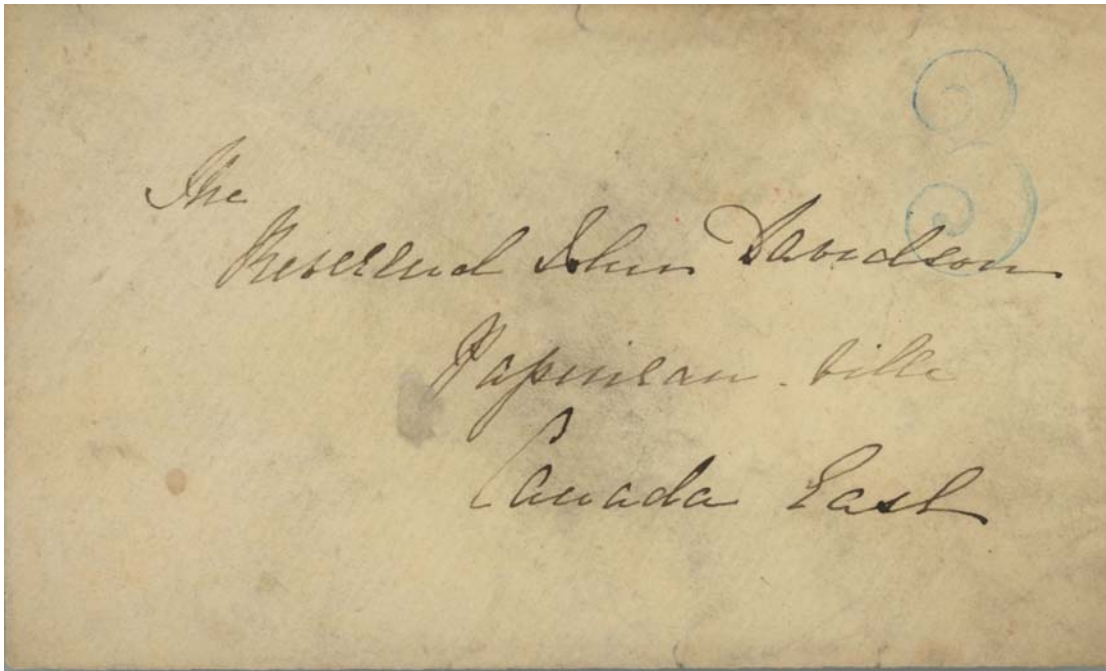 3
The
Reverend John Davidson
Papineau-ville
Canada East